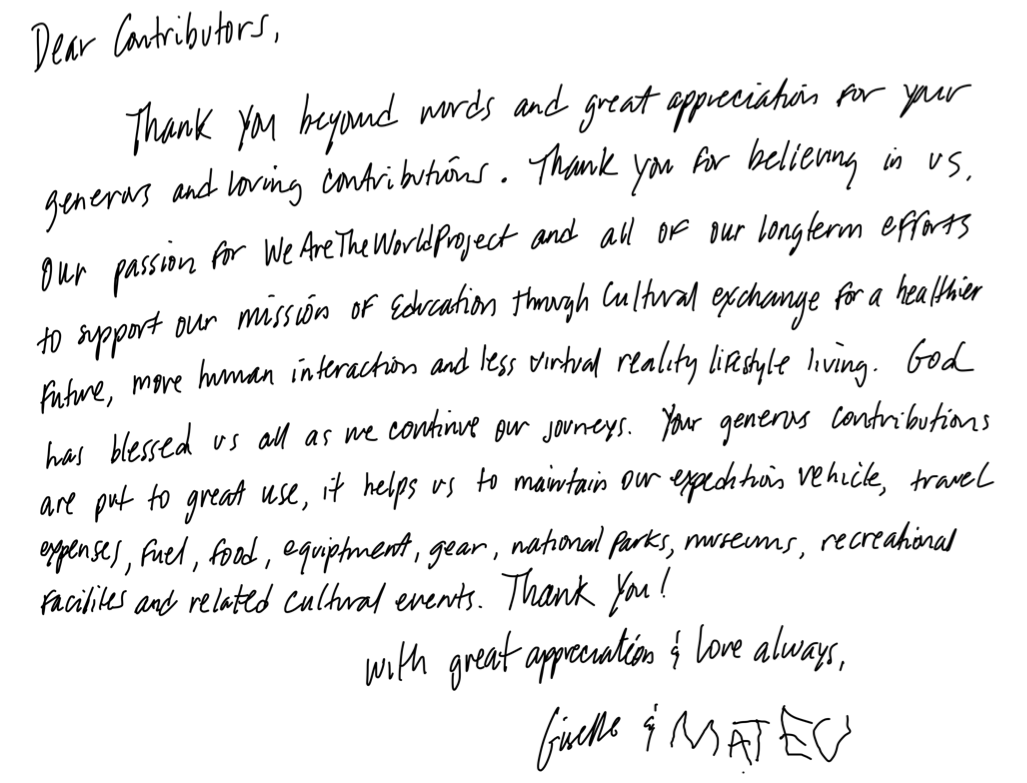 Dear Contributors,
Thank you beyond words and great appreciation for your
generous and loving contributions. Thank you for believing in us,
our passion for WeAreTheWorldProject and all of our longterm efforts
to support our mission of Education through Cultural exchange for a healthier
future, more human interaction and less virtual reality lifestyle living. God
has blessed us all as we continue our journeys. Your generous contributions
are put to great use, it helps us to maintain our expedition vehicle, travel
expenses, fuel, food, equiptment, gear, national parks, museums, recreational
facilites and related cultural events. Thank You!
with great appreciation & love always,
Giselle & MATEO